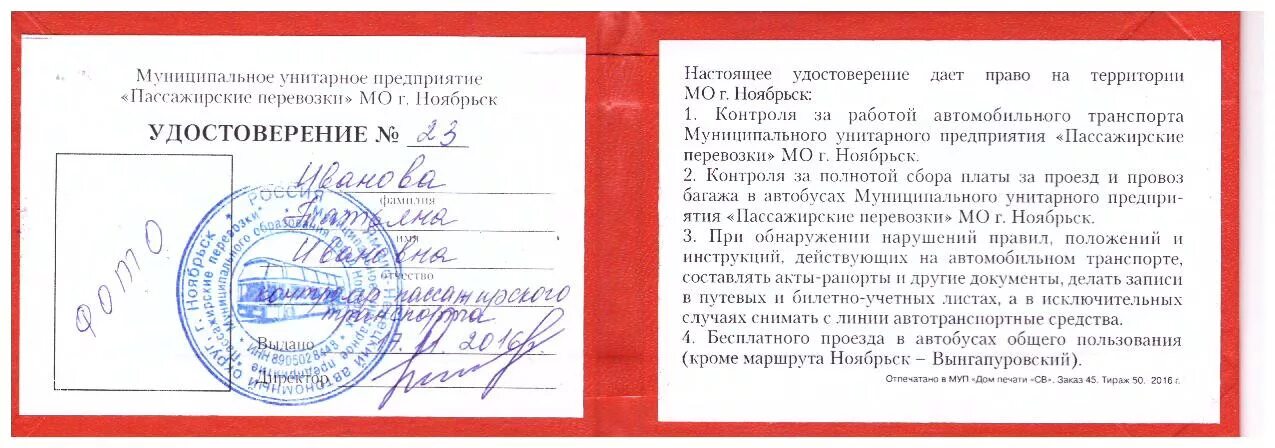 Муниципальное унитарное предприятие
«Пассажирские перевозки» МО г. Ноябрьск
УДОСТОВЕРЕНИЕ № 23
фото
Иванова
фамилия
Татьяна
имя
Ивановна
отчество
контролер пассажирского
транспорта
Выдано 17.11.2016г.
Директор
РОССИЯ
Ямало-Ненецкий автономный округ, г. Ноябрьск
Муниципальное унитарное предприятие
"Пассажирские перевозки"
Муниципального образования город Ноябрьск
ИНН 8905028448
Настоящее удостоверение дает право на территории
МО г. Ноябрьск:
1. Контроля за работой автомобильного транспорта
Муниципального унитарного предприятия «Пассажирские
перевозки» МО г. Ноябрьск.
2. Контроля за полнотой сбора платы за проезд и провоз
багажа в автобусах Муниципального унитарного предпри-
ятия «Пассажирские перевозки» МО г. Ноябрьск.
3. При обнаружении нарушений правил, положений и
инструкций, действующих на автомобильном транспорте,
составлять акты-рапорты и другие документы, делать записи
в путевых и билетно-учетных листах, а в исключительных
случаях снимать с линии автотранспортные средства.
4. Бесплатного проезда в автобусах общего пользования
(кроме маршрута Ноябрьск – Вынгапуровский).
Отпечатано в МУП «Дом печати «СВ». Заказ 45. Тираж 50. 2016 г.